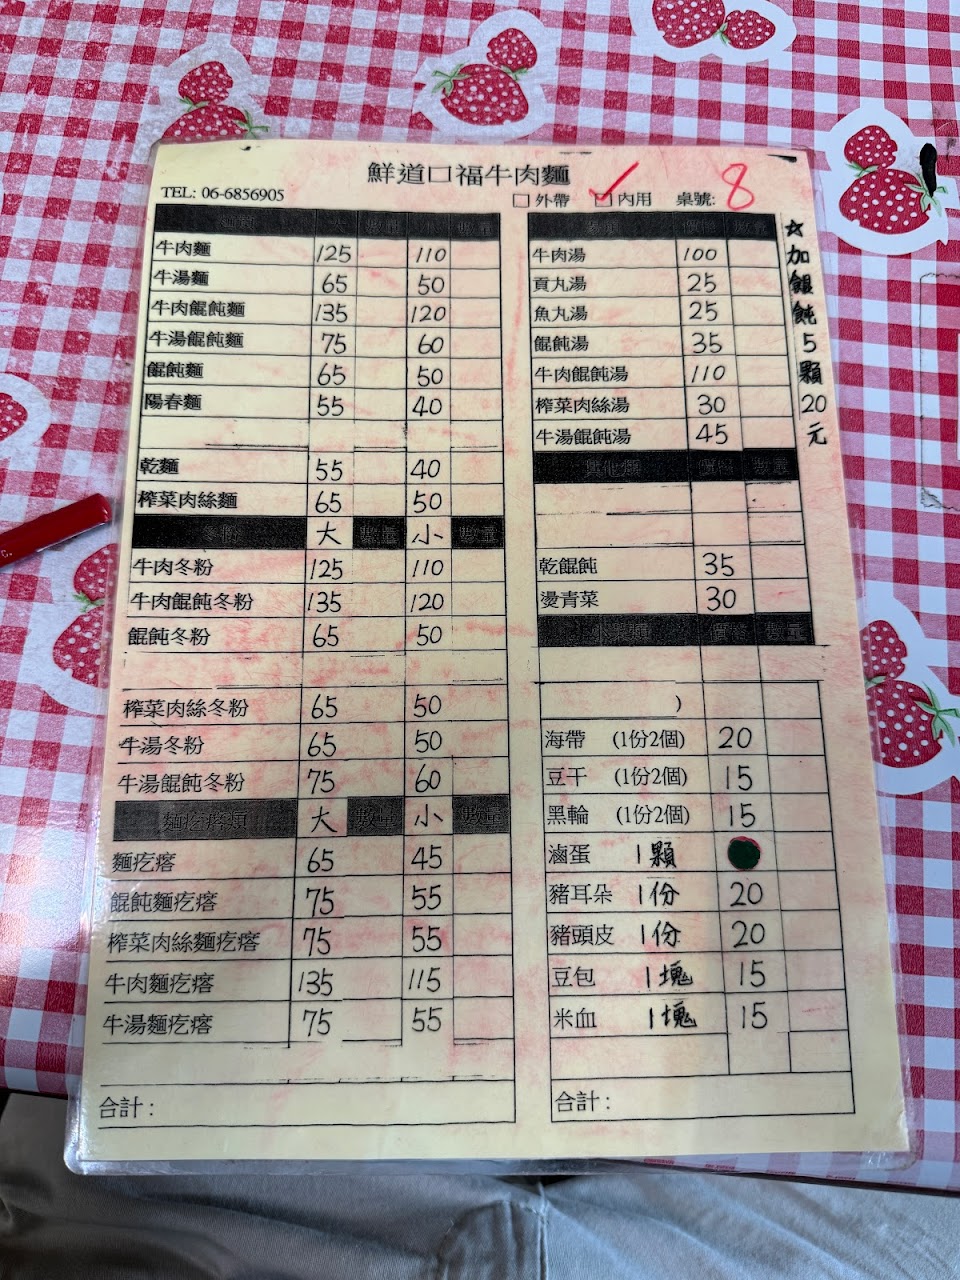 鮮道口福牛肉麵
TEL: 06-6856905
□ 外帶 □ 內用 桌號: 8
牛肉麵 125 110
牛湯麵 65 50
牛肉餛飩麵 135 120
牛湯餛飩麵 75 60
餛飩麵 65 50
陽春麵 55 40
乾麵 55 40
榨菜肉絲麵 65 50
冬粉 大 數量 小 數量
牛肉冬粉 125 110
牛肉餛飩冬粉 135 120
餛飩冬粉 65 50
榨菜肉絲冬粉 65 50
牛湯冬粉 65 50
牛湯餛飩冬粉 75 60
麵疙瘩類 大 數量 小 數量
麵疙瘩 65 45
餛飩麵疙瘩 75 55
榨菜肉絲麵疙瘩 75 55
牛肉麵疙瘩 135 115
牛湯麵疙瘩 75 55
合計：
價格 數量
牛肉湯 100
貢丸湯 25
魚丸湯 25
餛飩湯 35
牛肉餛飩湯 110
榨菜肉絲湯 30
牛湯餛飩湯 45
其他類 價格 數量
乾餛飩 35
燙青菜 30
價格 數量
)
海帶 (1份2個) 20
豆干 (1份2個) 15
黑輪 (1份2個) 15
滷蛋 1顆
豬耳朵 1份 20
豬頭皮 1份 20
豆包 1塊 15
米血 1塊 15
合計：
☆加餛飩5顆20元